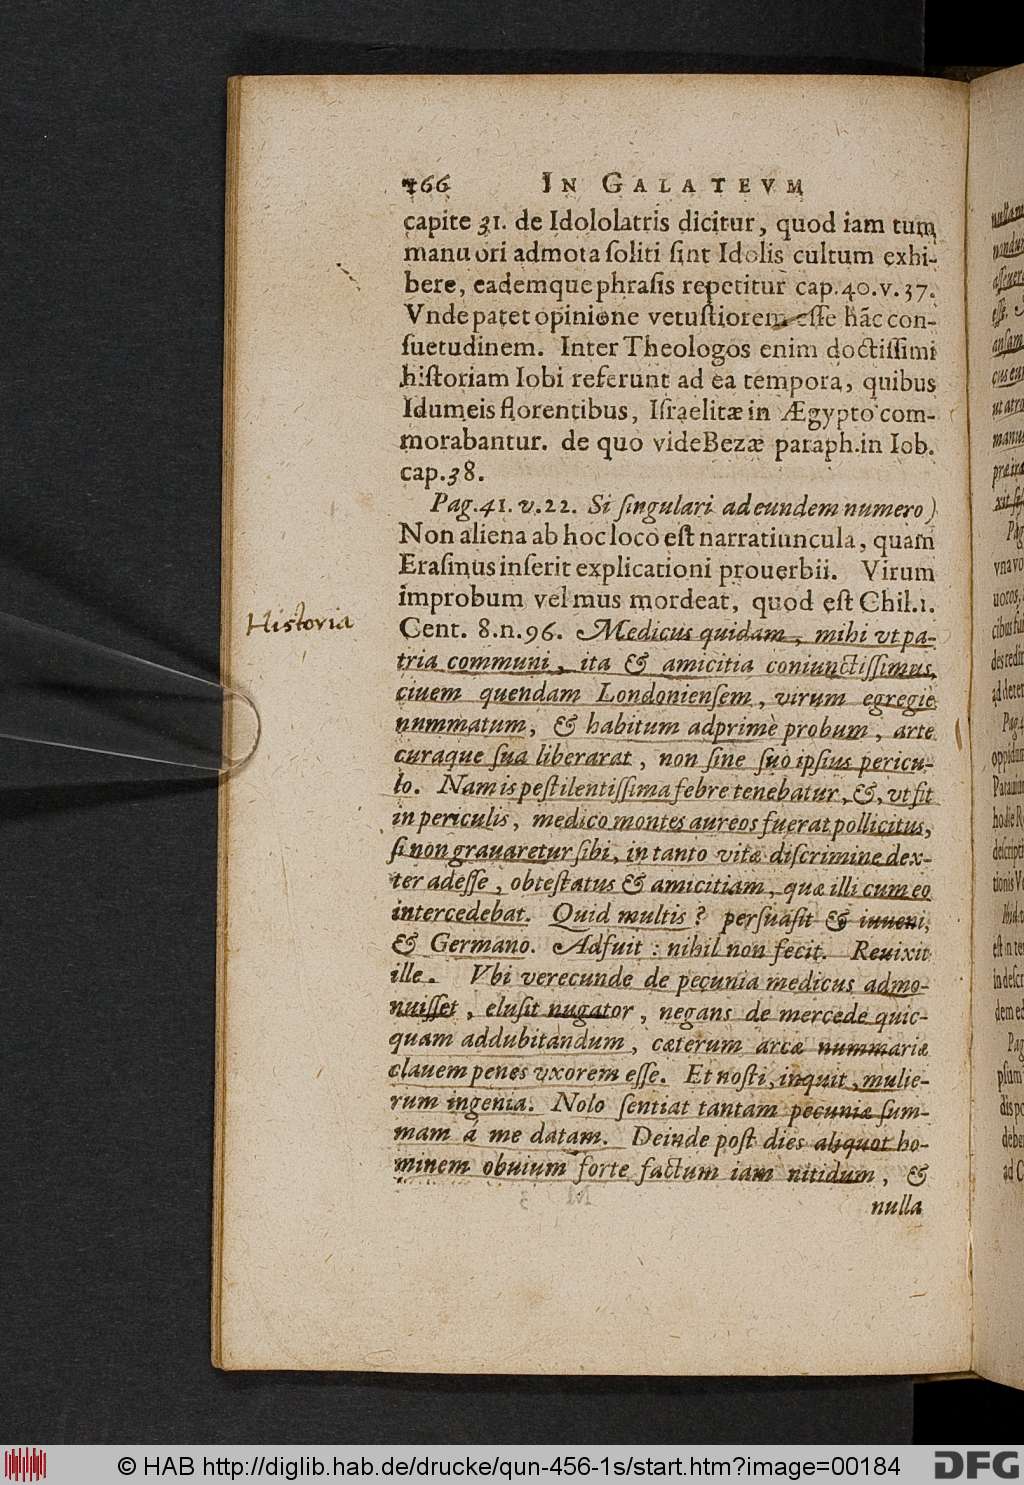 166 IN GALATEVM
capite 31. de Idololatris dicitur, quod iam tum
manu ori admota soliti sint Idolis cultum exhi-
bere, eademque phrasis repetitur cap. 40. v. 37.
Vnde patet opinione vetustiorem esse hãc con-
suetudinem. Inter Theologos enim doctissimi
historiam Iobi referunt ad ea tempora, quibus
Idumeis florentibus, Israelitæ in Ægypto com-
morabantur. de quo vide Bezæ paraph. in Iob.
cap. 38.
Pag. 41. v. 22. Si singulari ad eundem numero)
Non aliena ab hoc loco est narratiuncula, quam
Erasmus inserit explicationi prouerbii. Virum
improbum vel mus mordeat, quod est Chil. 1.
Historia
Cent. 8. n. 96. Medicus quidam, mihi vt pa-
tria communi, ita & amicitia coniunctissimus,
ciuem quendam Londoniensem, virum egregiè
nummatum, & habitum adprimè probum, arte
curaque sua liberarat, non sine suo ipsius pericu-
lo. Nam is pestilentissima febre tenebatur, &, vt fit
in periculis, medico montes aureos fuerat pollicitus,
si non grauaretur sibi, in tanto vitæ discrimine dex-
ter adesse, obtestatus & amicitiam, quæ illi cum eo
intercedebat. Quid multis? persuasit & iuueni,
& Germano. Adfuit: nihil non fecit. Reuixit
ille. Vbi verecunde de pecunia medicus admo-
nuisset, elusit nugator, negans de mercede quic-
quam addubitandum, cæterum arcæ nummariæ
clauem penes vxorem esse. Et nosti, inquit, mulie-
rum ingenia. Nolo sentiat tantam pecuniæ sum-
mam à me datam. Deinde post dies aliquot ho-
minem obuium forte factum iam nitidum, &
nulla
© HAB http://diglib.hab.de/drucke/qun-456-1s/start.htm?image=00184
DFG